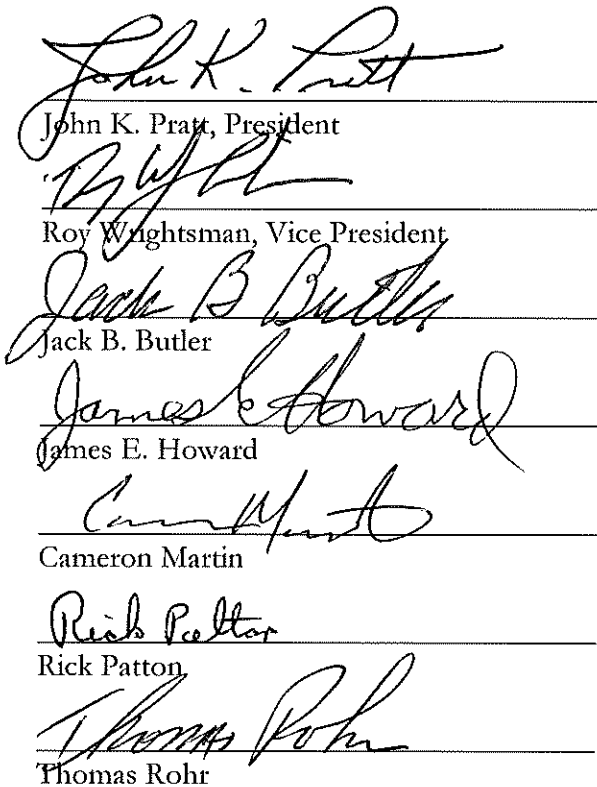 John K. Pratt
John K. Pratt, President
Roy Wrightsman, Vice President
Jack B Butler
Jack B. Butler
James E Howard
James E. Howard
Cameron Martin
Rick Patton
Rick Patton
Thomas Rohr
Thomas Rohr